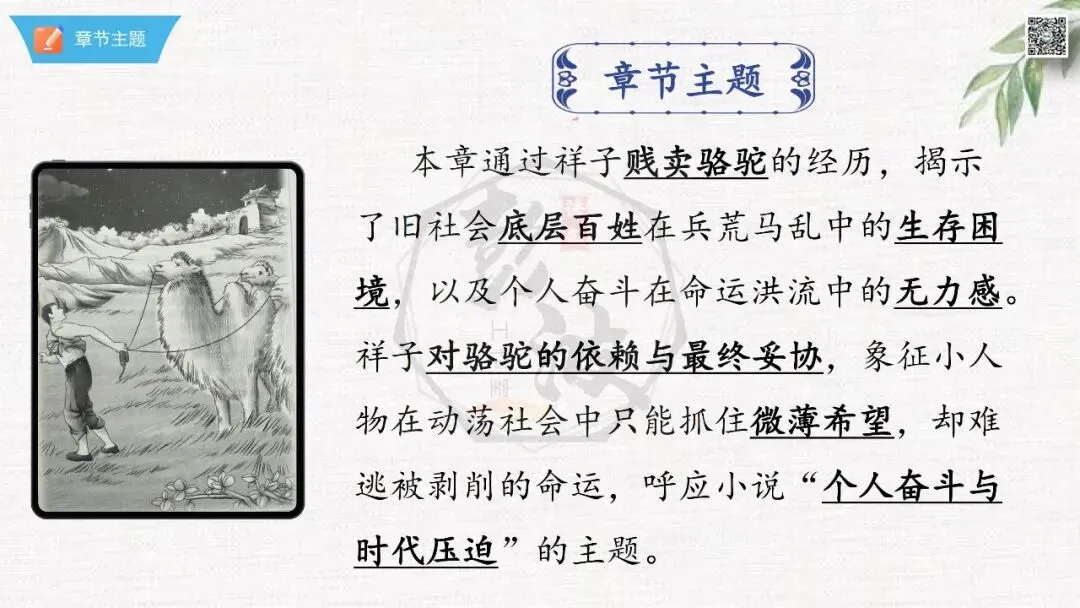 章节主题
章节主题
本章通过祥子贱卖骆驼的经历，揭示
了旧社会底层百姓在兵荒马乱中的生存困
境，以及个人奋斗在命运洪流中的无力感。
祥子对骆驼的依赖与最终妥协，象征小人
物在动荡社会中只能抓住微薄希望，却难
逃被剥削的命运，呼应小说“个人奋斗与
时代压迫”的主题。